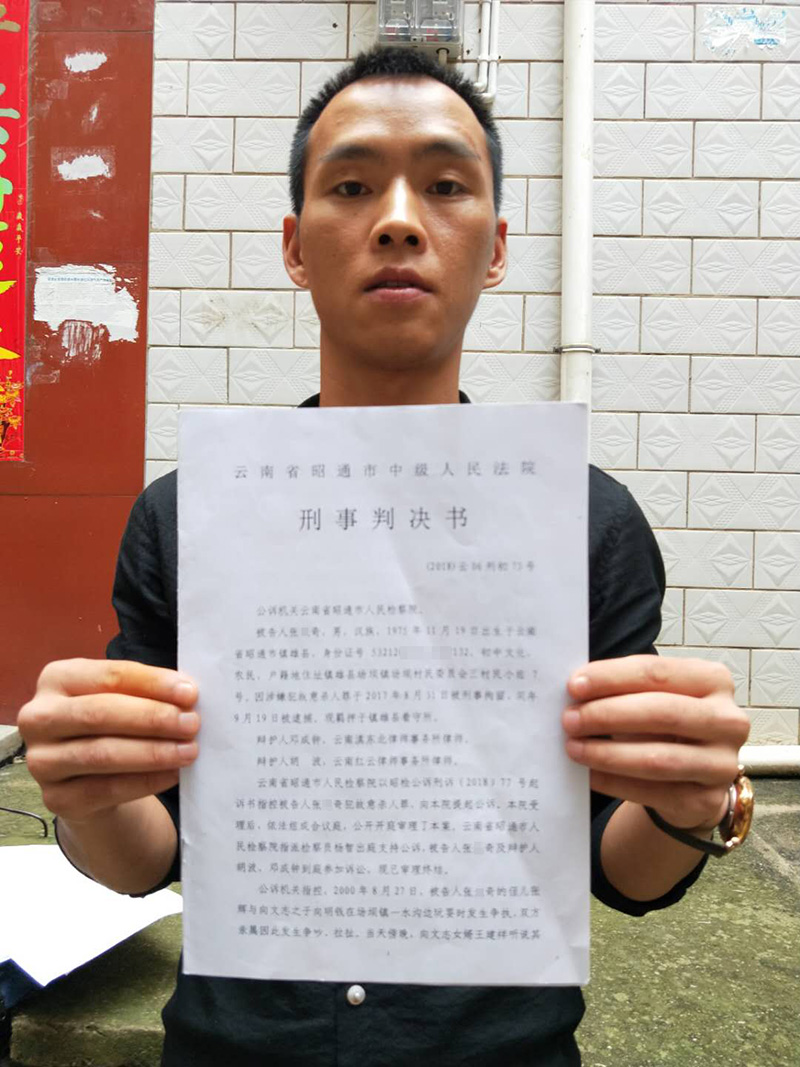 岁岁平安
云南省昭通市中级人民法院
刑事判决书
(2018)云06刑初75号
公诉机关云南省昭通市人民检察院。
被告人张 奇，男，汉族，1975年11月19日出生于云南
省昭通市镇雄县，身份证号53212 132，初中文化，
农民，户籍地住址镇雄县 坝镇 坝村民委员会三村民小组7
号。因涉嫌犯故意杀人罪于2017年8月31日被刑事拘留，同年
9月19日被逮捕，现羁押于镇雄县看守所。
辩护人邓成钟，云南滇东北律师事务所律师。
辩护人胡 波，云南红云律师事务所律师。
云南省昭通市人民检察院以昭检公诉刑诉（2018）77号起
诉书指控被告人张 奇犯故意杀人罪，向本院提起公诉。本院受
理后，依法组成合议庭，公开开庭审理了本案。云南省昭通市人
民检察院指派检察员杨智出庭支持公诉，被告人张 奇及辩护人
胡波、邓成钟到庭参加诉讼。现已审理终结。
公诉机关指控，2000年8月27日，被告人张 奇的侄儿张
辉与向文志之子向明钱在 坝镇一水沟边玩耍时发生争执，双方
亲属因此发生争吵、拉扯。当天傍晚，向文志女婿王建 听说其